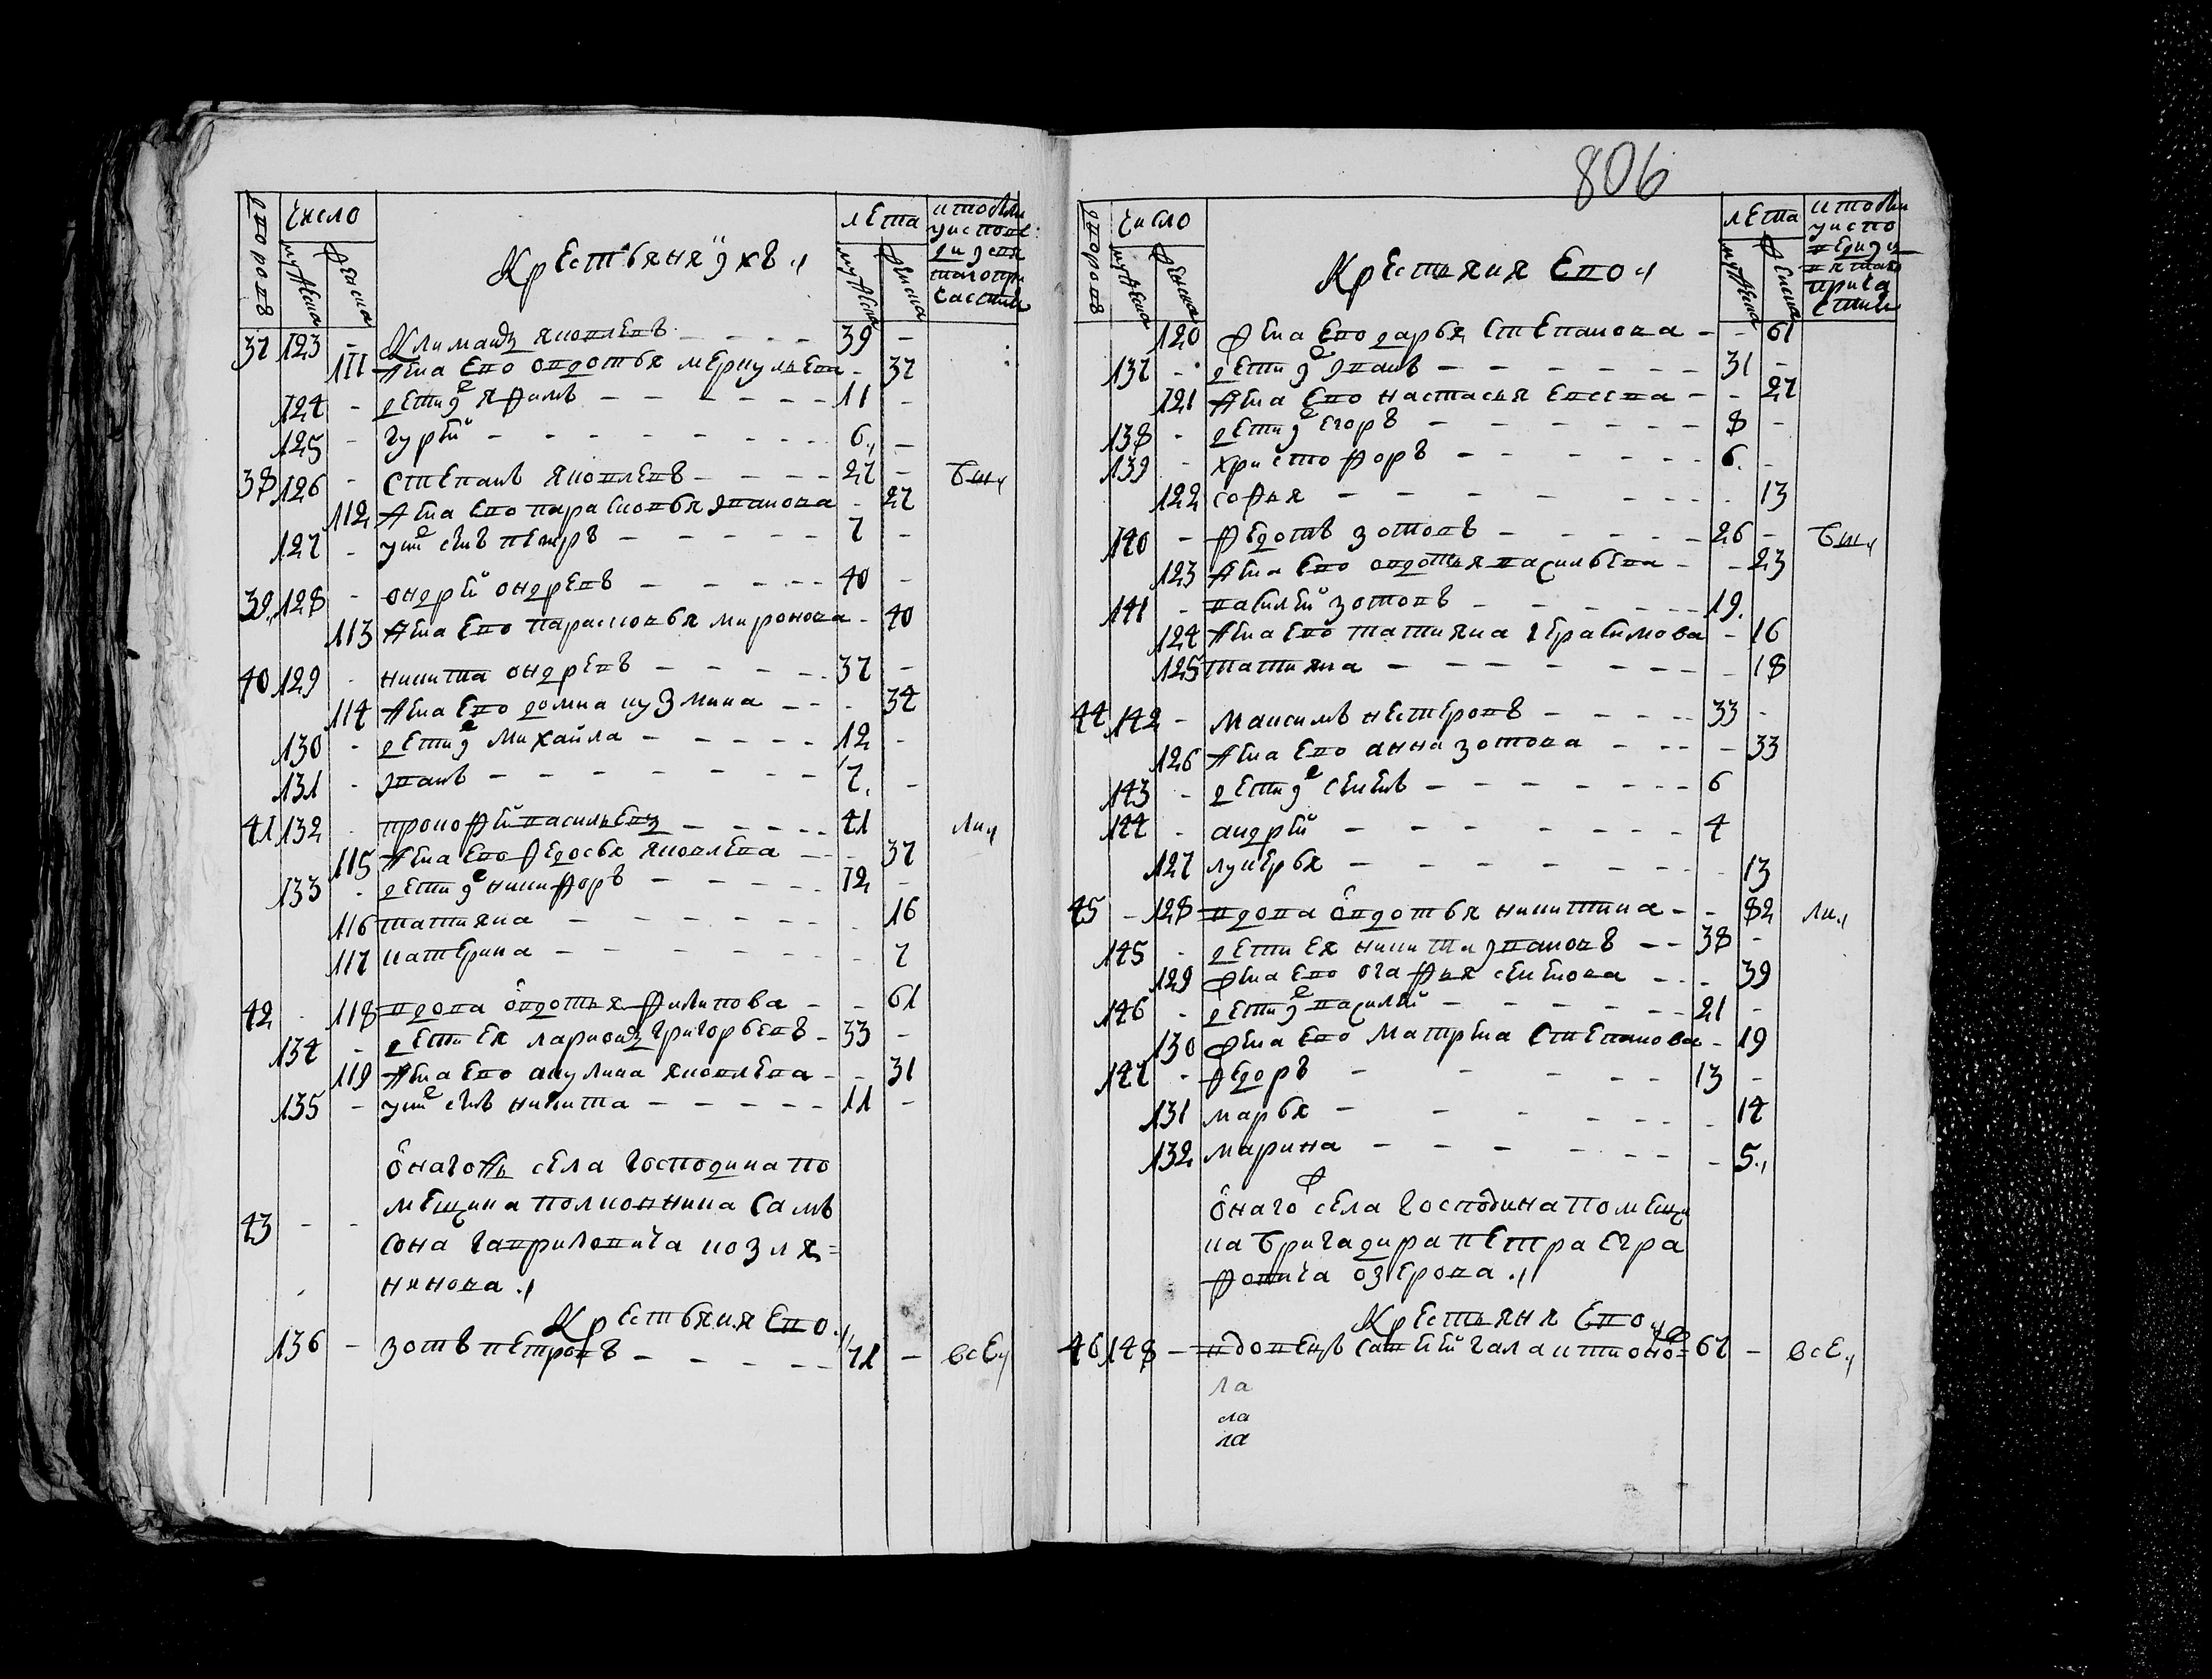 дворовъ
число
мужеска
женска
Крестьяня ихъ
лѣта
мужеска
женска
кто были
у испове
ди и свя
таго при
частия
37 123 - Климантъ Яковлевъ - - - - 39 -
111 жена ево Овдотья Меркульева - 37
124 - дети ихъ Яфимъ - - - - - - 11 -
125 - Гурей - - - - - - - - 6 -
38 126 - Степанъ Яковлевъ - - - - 27 - бы
112 жена ево Парасковья Иванова - 27
127 - у нихъ сынъ Петръ - - - - - 7 -
39 128 - Ондрей Ондревъ - - - - - 40 -
113 жена ево Парасковья Миронова - 40
40 129 - Никита Ондревъ - - - - - 37 -
114 жена ево Домна Кузмина - - - 34
130 - дети ихъ Михайла - - - - - 12 -
131 - Иванъ - - - - - - - 7 -
41 132 - Прокофей Васильевъ - - - - - 41 ли
115 жена ево Федосья Яковлева - - - 37
133 - дети ихъ Никифоръ - - - - - 12 -
116 Татияна - - - - - - - 16
117 Катерина - - - - - - - 7
42 - 118 вдова Овдотья Филипова - - 61
134 - дети ея Ларионъ Григорьевъ - 33 -
119 жена ево Акулина Яковлева - - 31
135 - у нихъ сынъ Никита - - - - - 11 -
онагожъ села господина по
мещика полковника Самъ
43 - - сона Гавриловича Козля=
нинова
Крестьяня ево
136 - Зотъ Петровъ - - - - - 71 - все
806
дворовъ
число
мужеска
женска
Крестьяня ево
лѣта
мужеска
женска
кто были
у испо
веди и
святаго
прича
стия
120 жена ево Дарья Степанова - - 61
137 - дети ихъ Иванъ - - - - - - 31 -
121 жена ево Настасья Евсева - - 27
138 - дети ихъ Егоръ - - - - - - 8 -
139 - Христофоръ - - - - - - 6 -
122 Софья - - - - - - - - 13
140 - Федотъ Зотовъ - - - - - 26 - бы
123 жена ево Овдотья Васильева - - 23
141 - Василей Зотовъ - - - - - - 19
124 жена ево Татияна Герасимова - 16
125 Татияна - - - - - - - - 18
44 142 - Максимъ Нестеровъ - - - - 33 -
126 жена ево Анна Зотова - - - - 33
143 - дети ихъ Семенъ - - - - - - - 6
144 - Андрей - - - - - - - 4
127 Лукерья - - - - - - - - 13
45 - 128 вдова Овдотья Никитина - - 82 ли
145 - дети ея Никита Ивановъ - - 38 -
129 жена ево Огафья Семенова - - - 39
146 - дети ихъ Василей - - - - - - 21 -
130 жена ево Матрена Степанова - 19
147 - Федоръ - - - - - 13 -
131 Марья - - - - - - 14
132 Марина - - - - - - - 5
онагожъ села господина помещи
ка бригадира Петра Егра
фовича Озерова
Крестьяня ево
46 148 - вдовецъ 67 - все
ла
ла
ла